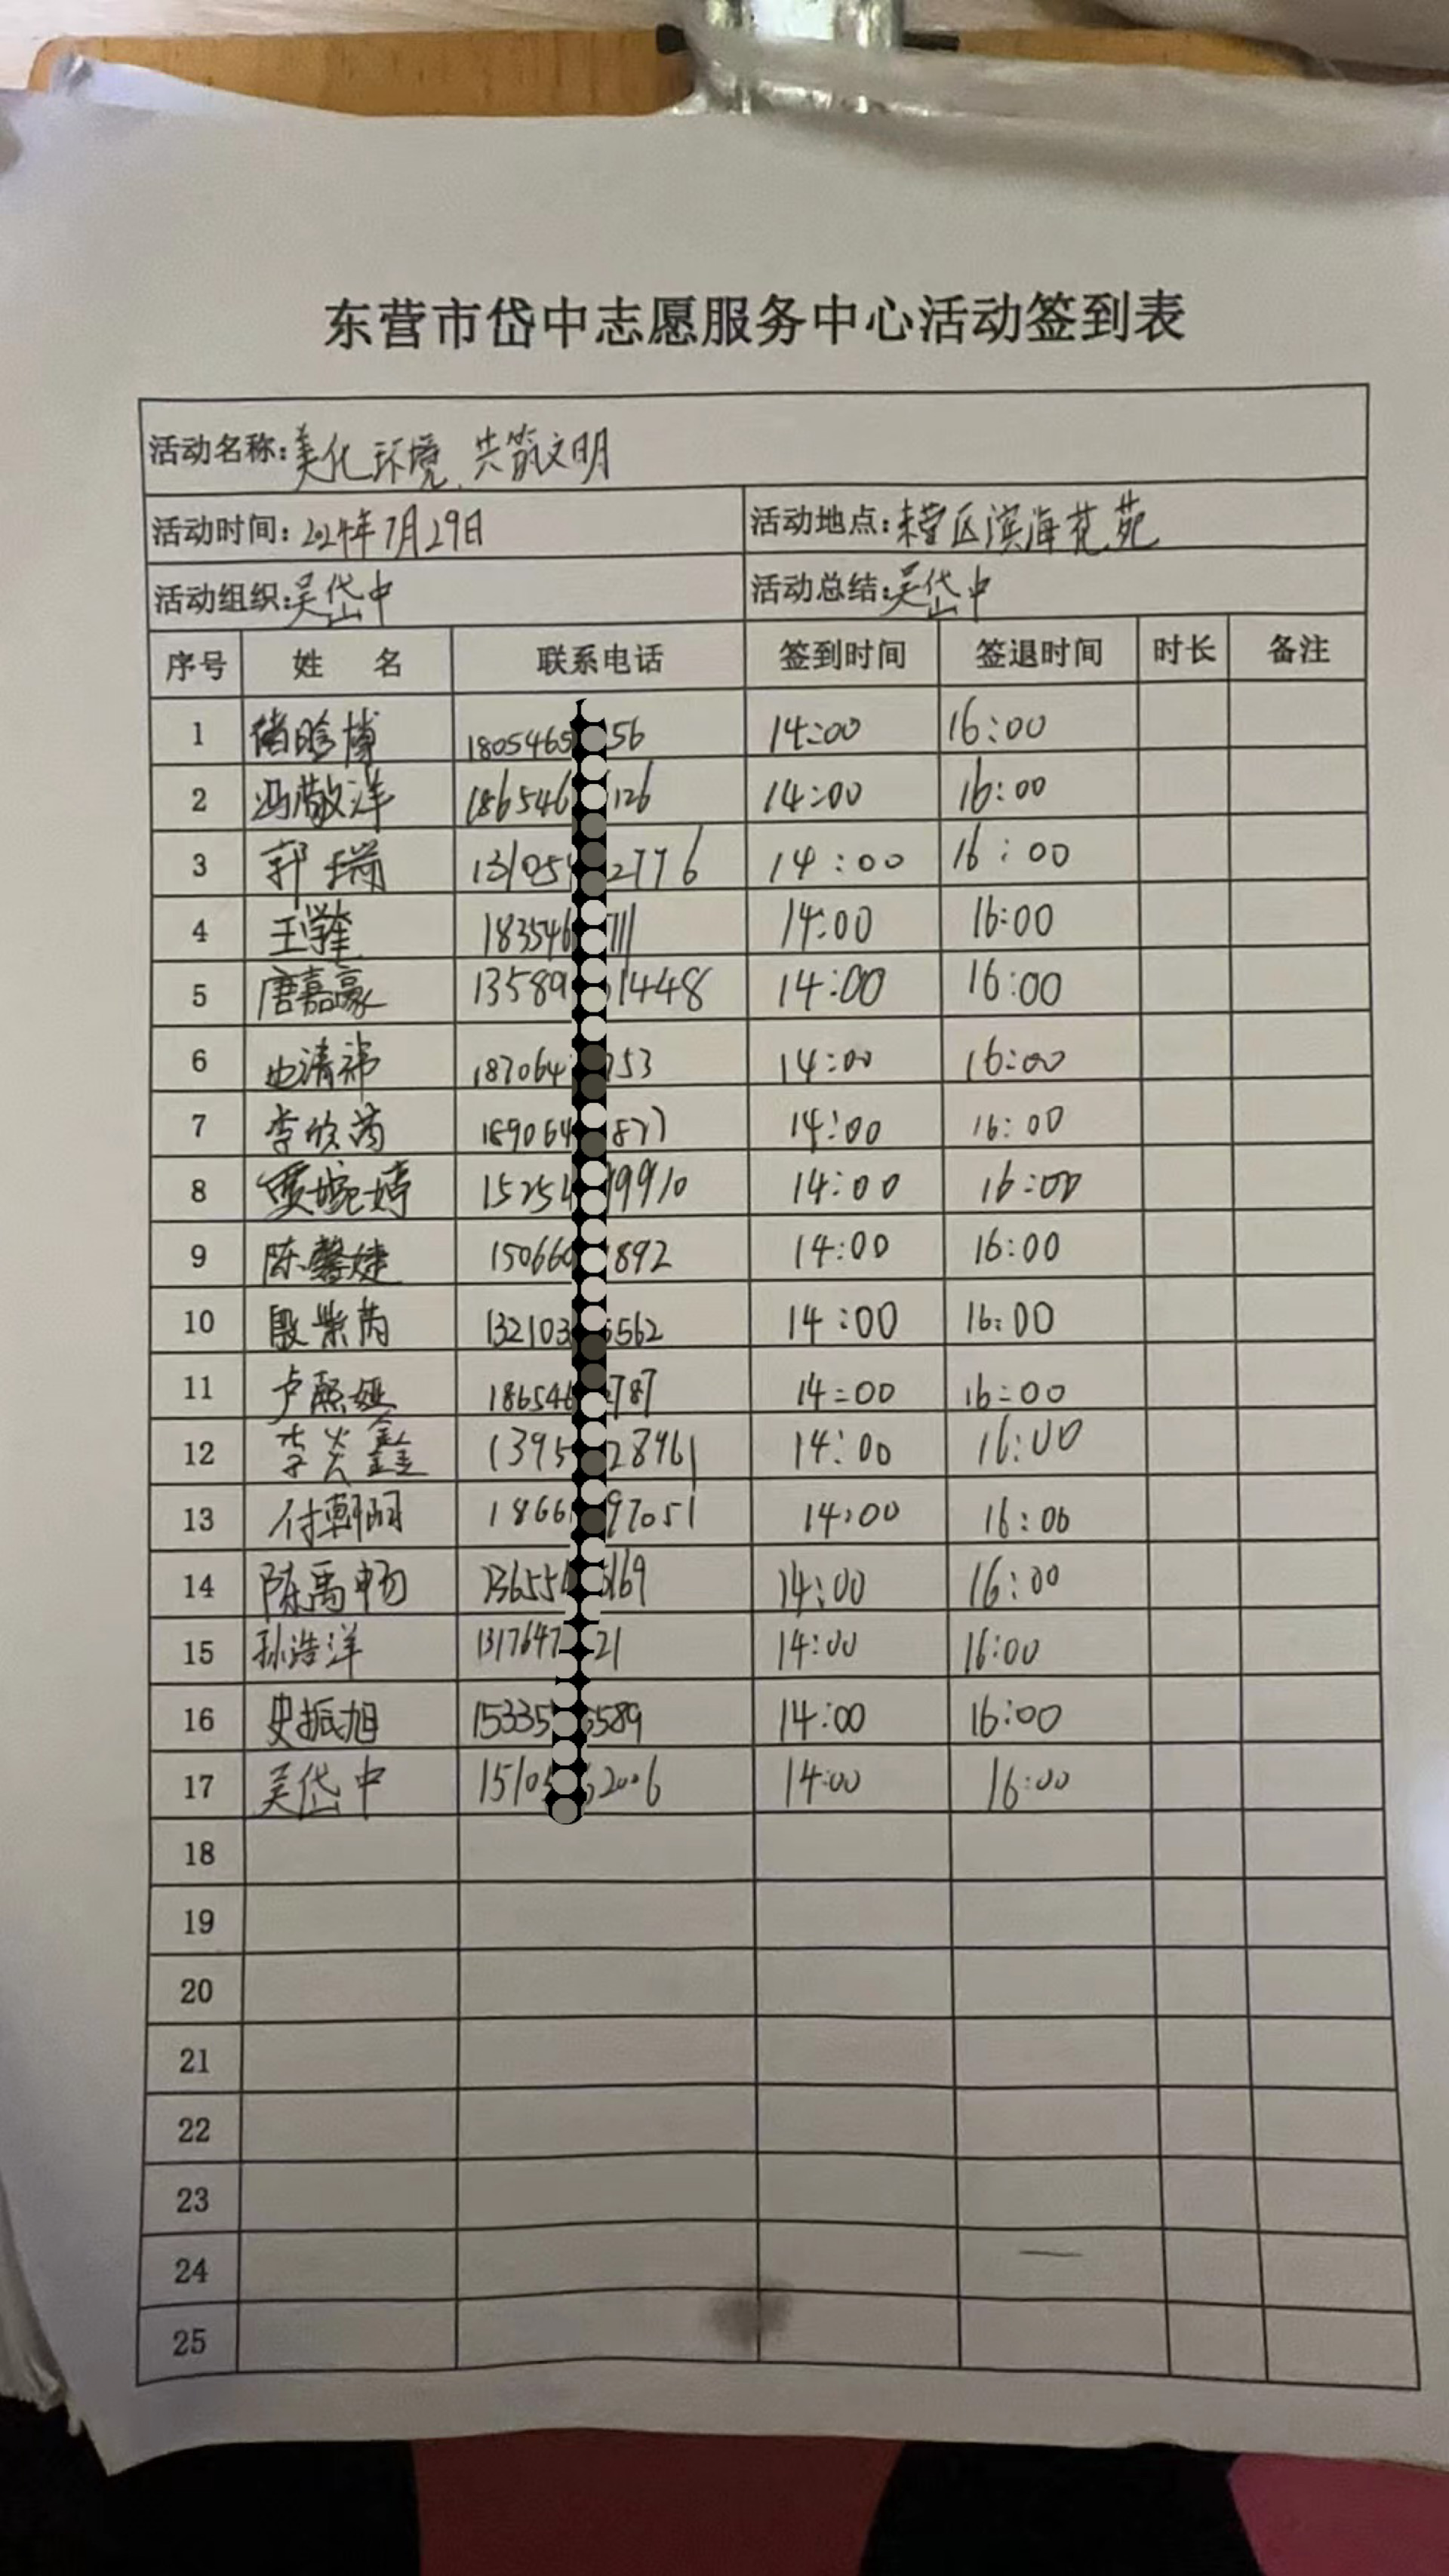 东营市岱中志愿服务中心活动签到表
活动名称:美化环境、共筑文明
活动时间:2024年7月29日 活动地点:东营区滨海花苑
活动组织:吴岱中 活动总结:吴岱中
序号 姓 名 联系电话 签到时间 签退时间 时长 备注
1 1805465 56 14:00 16:00
2 冯敬洋 186546 126 14:00 16:00
3 郭瑞 131054 2776 14:00 16:00
4 王学奎 183546 711 14:00 16:00
5 唐嘉豪 13589 1448 14:00 16:00
6 清祎 187064 753 14:00 16:00
7 李欣芮 189064 877 14:00 16:00
8 贾婉婷 15254 9910 14:00 16:00
9 陈馨婕 150660 892 14:00 16:00
10 殷紫芮 132103 5562 14:00 16:00
11 卢熙娅 186546 787 14:00 16:00
12 李炎鑫 1395 28961 14:00 16:00
13 付朝阳 1866 97051 14:00 16:00
14 陈禹畅 136554 169 14:00 16:00
15 孙浩洋 1317647 21 14:00 16:00
16 史振旭 15335 5589 14:00 16:00
17 吴岱中 15105 52006 14:00 16:00
18
19
20
21
22
23
24
25